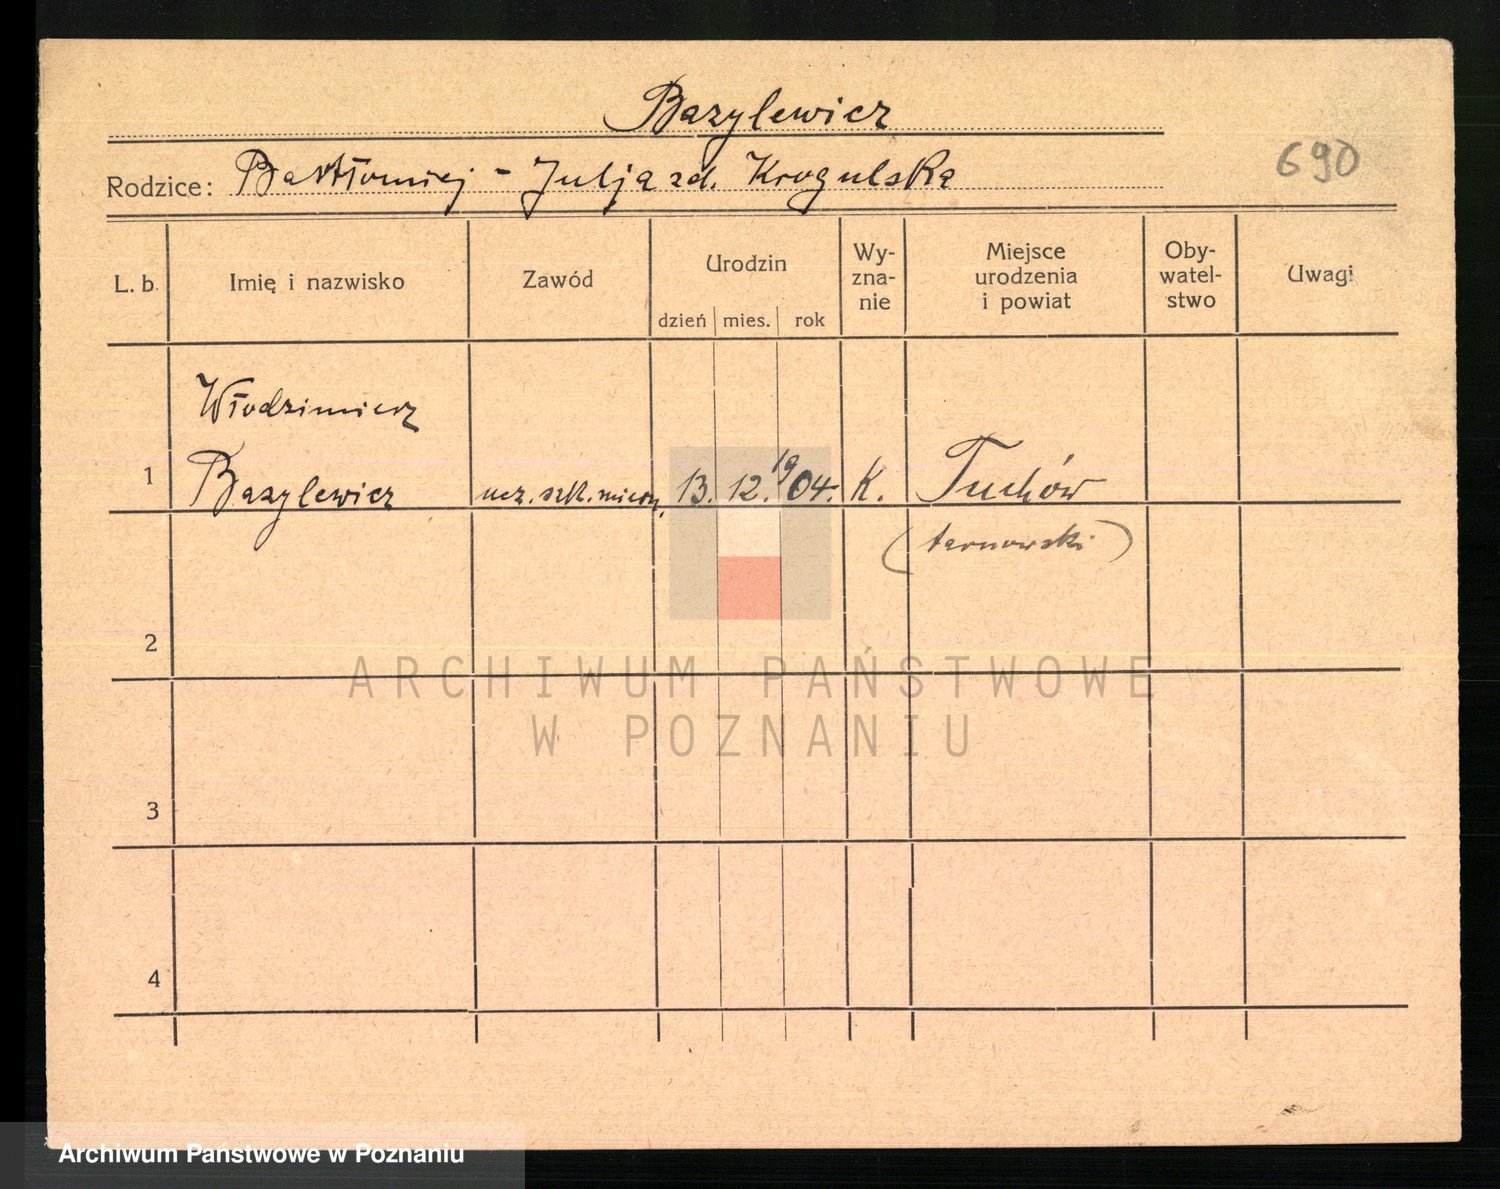 Bazylewicz
690
Rodzice: Bartłomiej - Julja zd. Krogulska
L. b.
Imię i nazwisko
Zawód
Urodzin
dzień mies. rok
Wy-
zna-
nie
Miejsce
urodzenia
i powiat
Oby-
watel-
stwo
Uwagi
Włodzimierz
1 Bazylewicz ucz. szk. miern. 13. 12. 1904. K. Tuchów
(tarnowski)
2
ARCHIWUM PAŃSTWOWE
W POZNANIU
3
4
Archiwum Państwowe w Poznaniu